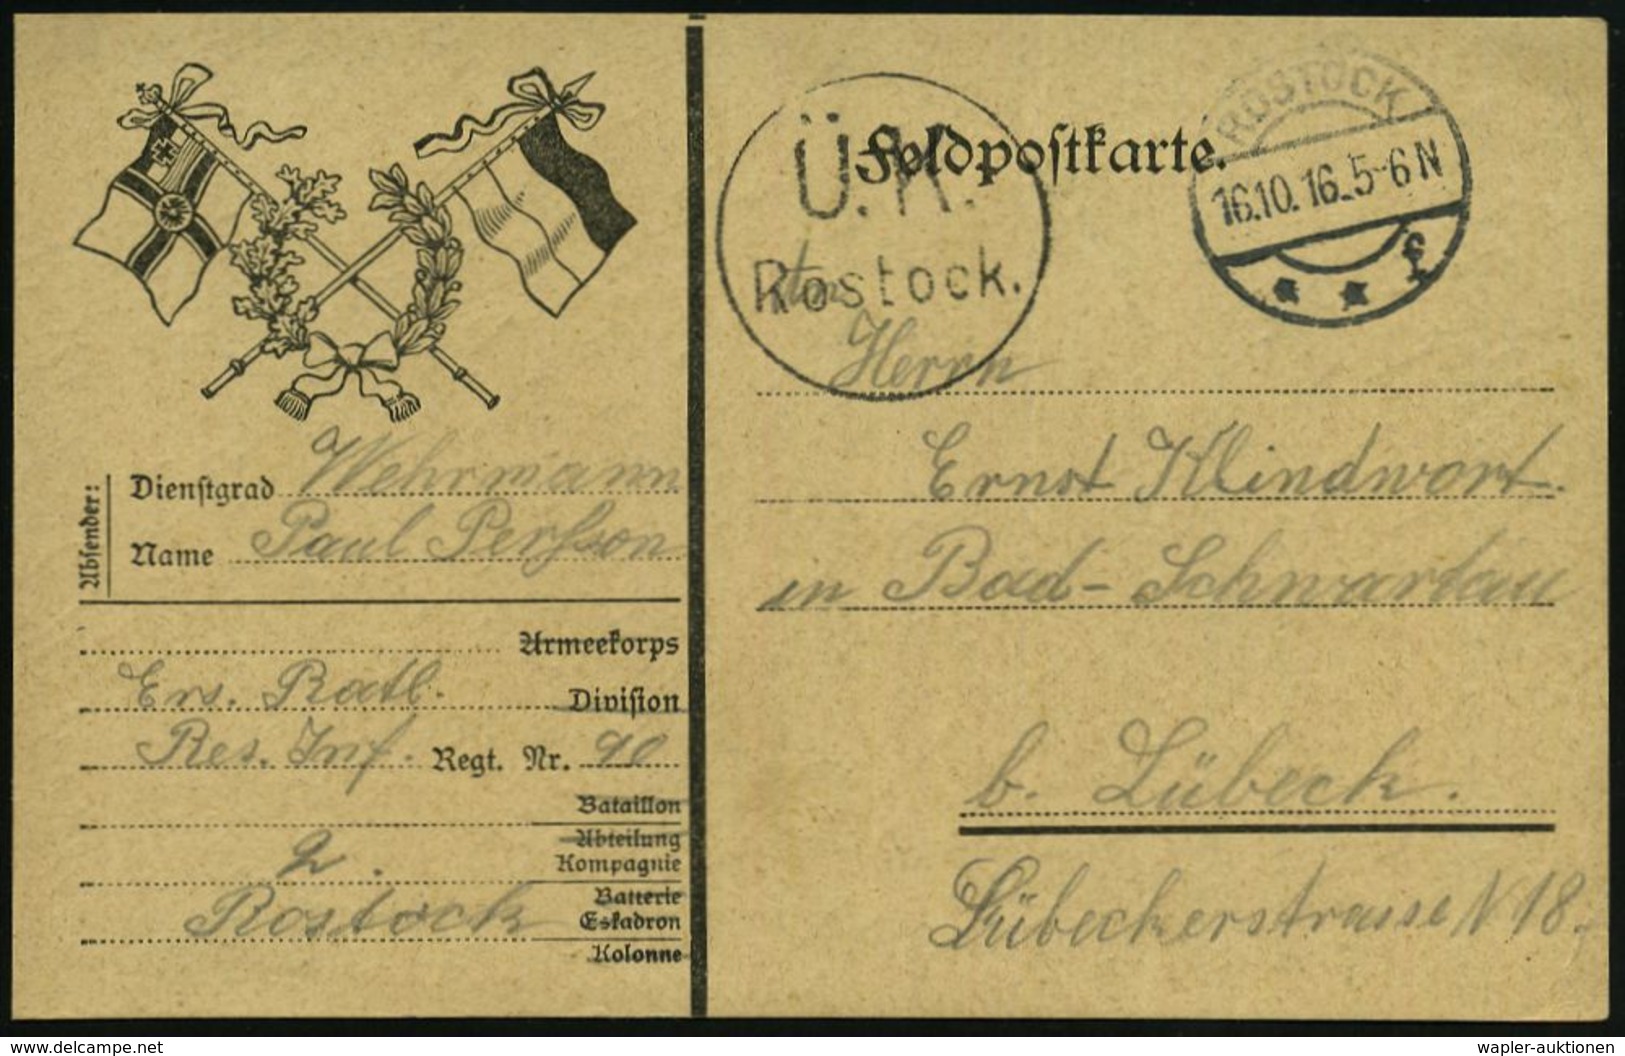 Feldpostkarte.
Ü. K.
Rostock.
ROSTOCK
16.10.16. 5-6 N
f
An
Herrn
Ernst Klindwort.
in Bad-Schwartau
b. Lübeck.
Lübeckerstrasse N 18.
Absender:
Dienstgrad Wehrmann
Name Paul Persson
Armeekorps
Ers. Batl. Division
Res. Inf. Regt. Nr. 90
Bataillon
Abteilung
2. Kompagnie
Batterie
Rostock Eskadron
Kolonne
www.delcampe.net
wapler-auktionen